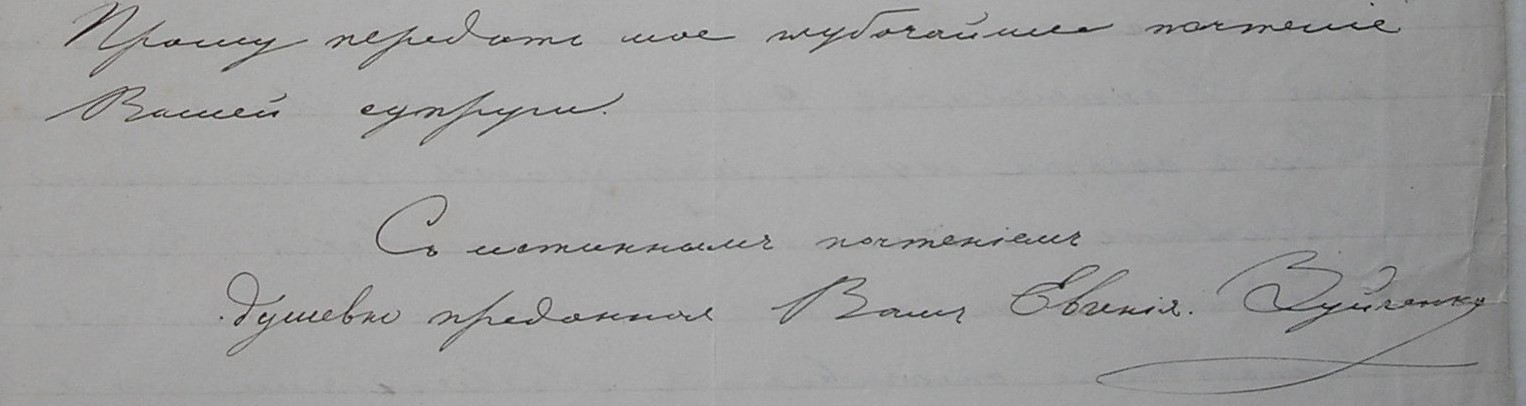 Прошу передать мое глубочайшее почтеніе
Вашей супруги.
Съ истиннымъ почтеніемъ
Душевно преданная Вамъ Евгенія. Зуйченко